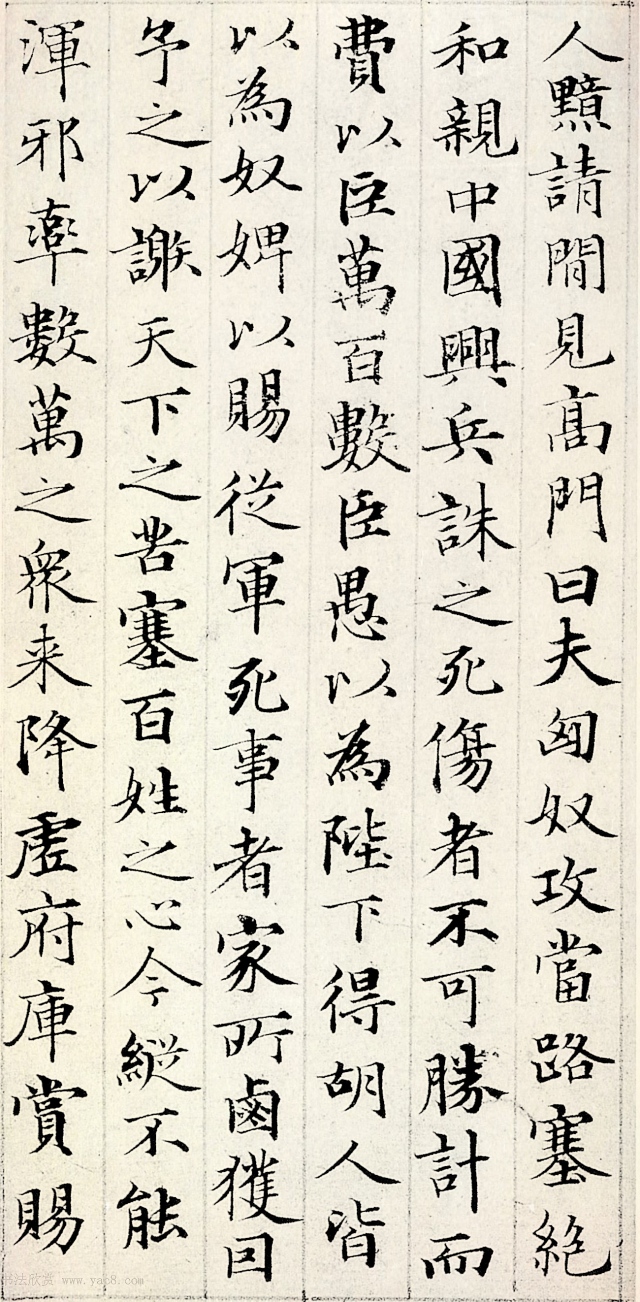 人黯請閒見高門曰夫匈奴攻當路塞絶
和親中國興兵誅之死傷者不可勝計而
費以臣萬百數臣愚以為陛下得胡人皆
以為奴婢以賜從軍死事者家所鹵獲因
予之以謝天下之苦塞百姓之心今縱不能
渾邪率數萬之衆来降虛府庫賞賜
书法欣赏 www.yac8.com